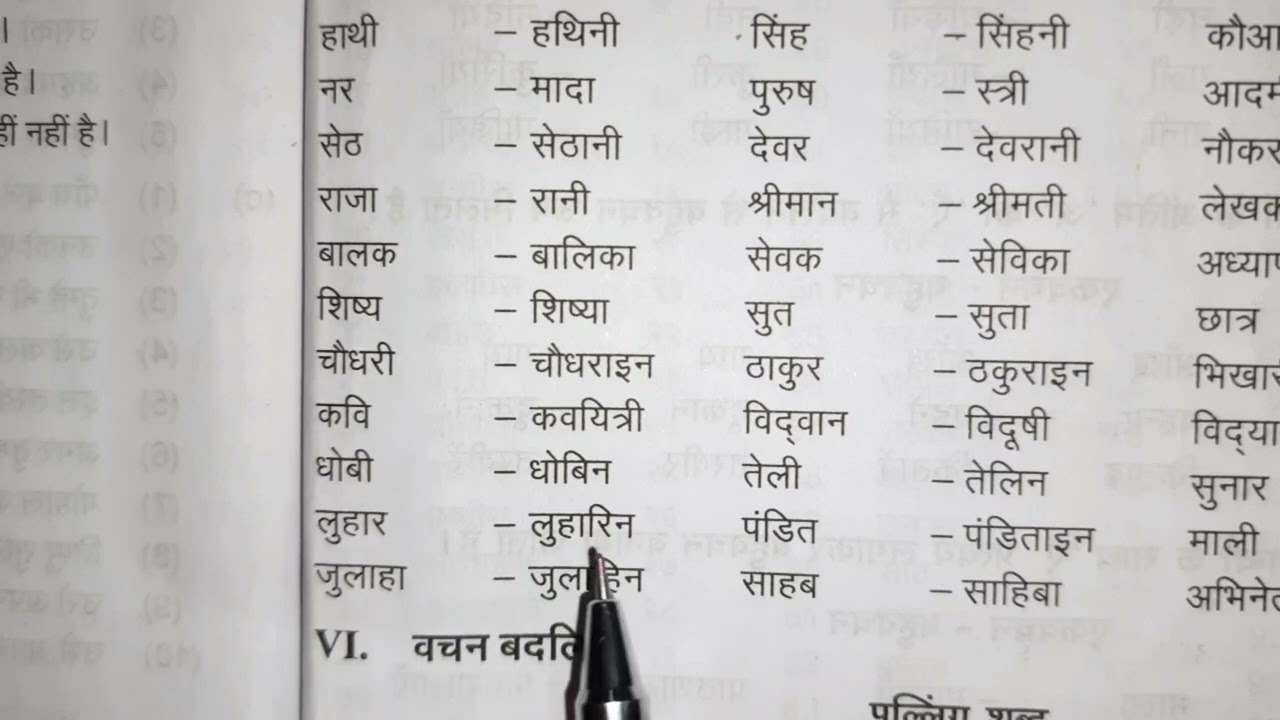 ।
है।
हीं नहीं है।
हाथी – हथिनी सिंह – सिंहनी कौआ
नर – मादा पुरुष – स्त्री
सेठ – सेठानी देवर – देवरानी नौकर
राजा – रानी श्रीमान – श्रीमती लेखक
बालक – बालिका सेवक – सेविका
शिष्य – शिष्या सुत – सुता छात्र
चौधरी – चौधराइन ठाकुर – ठकुराइन
कवि – कवयित्री विद्वान – विदूषी
धोबी – धोबिन तेली – तेलिन सुनार
लुहार – लुहारिन पंडित – पंडिताइन माली
जुलाहा – जुलाहिन साहब – साहिबा
VI. वचन
पुल्लिंग शब्द